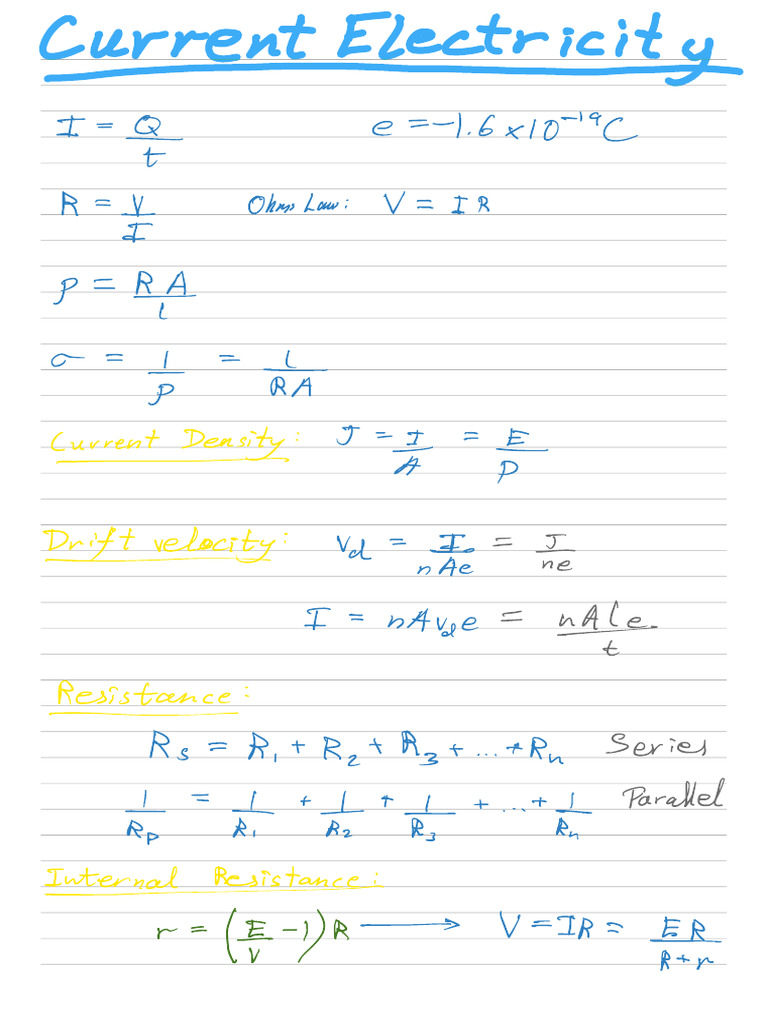 Current Electricity
I = Q/t e = -1.6 × 10⁻¹⁹ C
R = V/I Ohms Law: V = IR
ρ = RA/l
σ = 1/ρ = l/RA
Current Density: J = I/A = E/ρ
Drift velocity: v_d = I/nAe = J/ne
I = nAv_de = nAle/t
Resistance:
R_s = R₁ + R₂ + R₃ + ... + R_n Series
1/R_p = 1/R₁ + 1/R₂ + 1/R₃ + ... + 1/R_n Parallel
Internal Resistance:
r = (E/V - 1)R → V = IR = ER/R+r